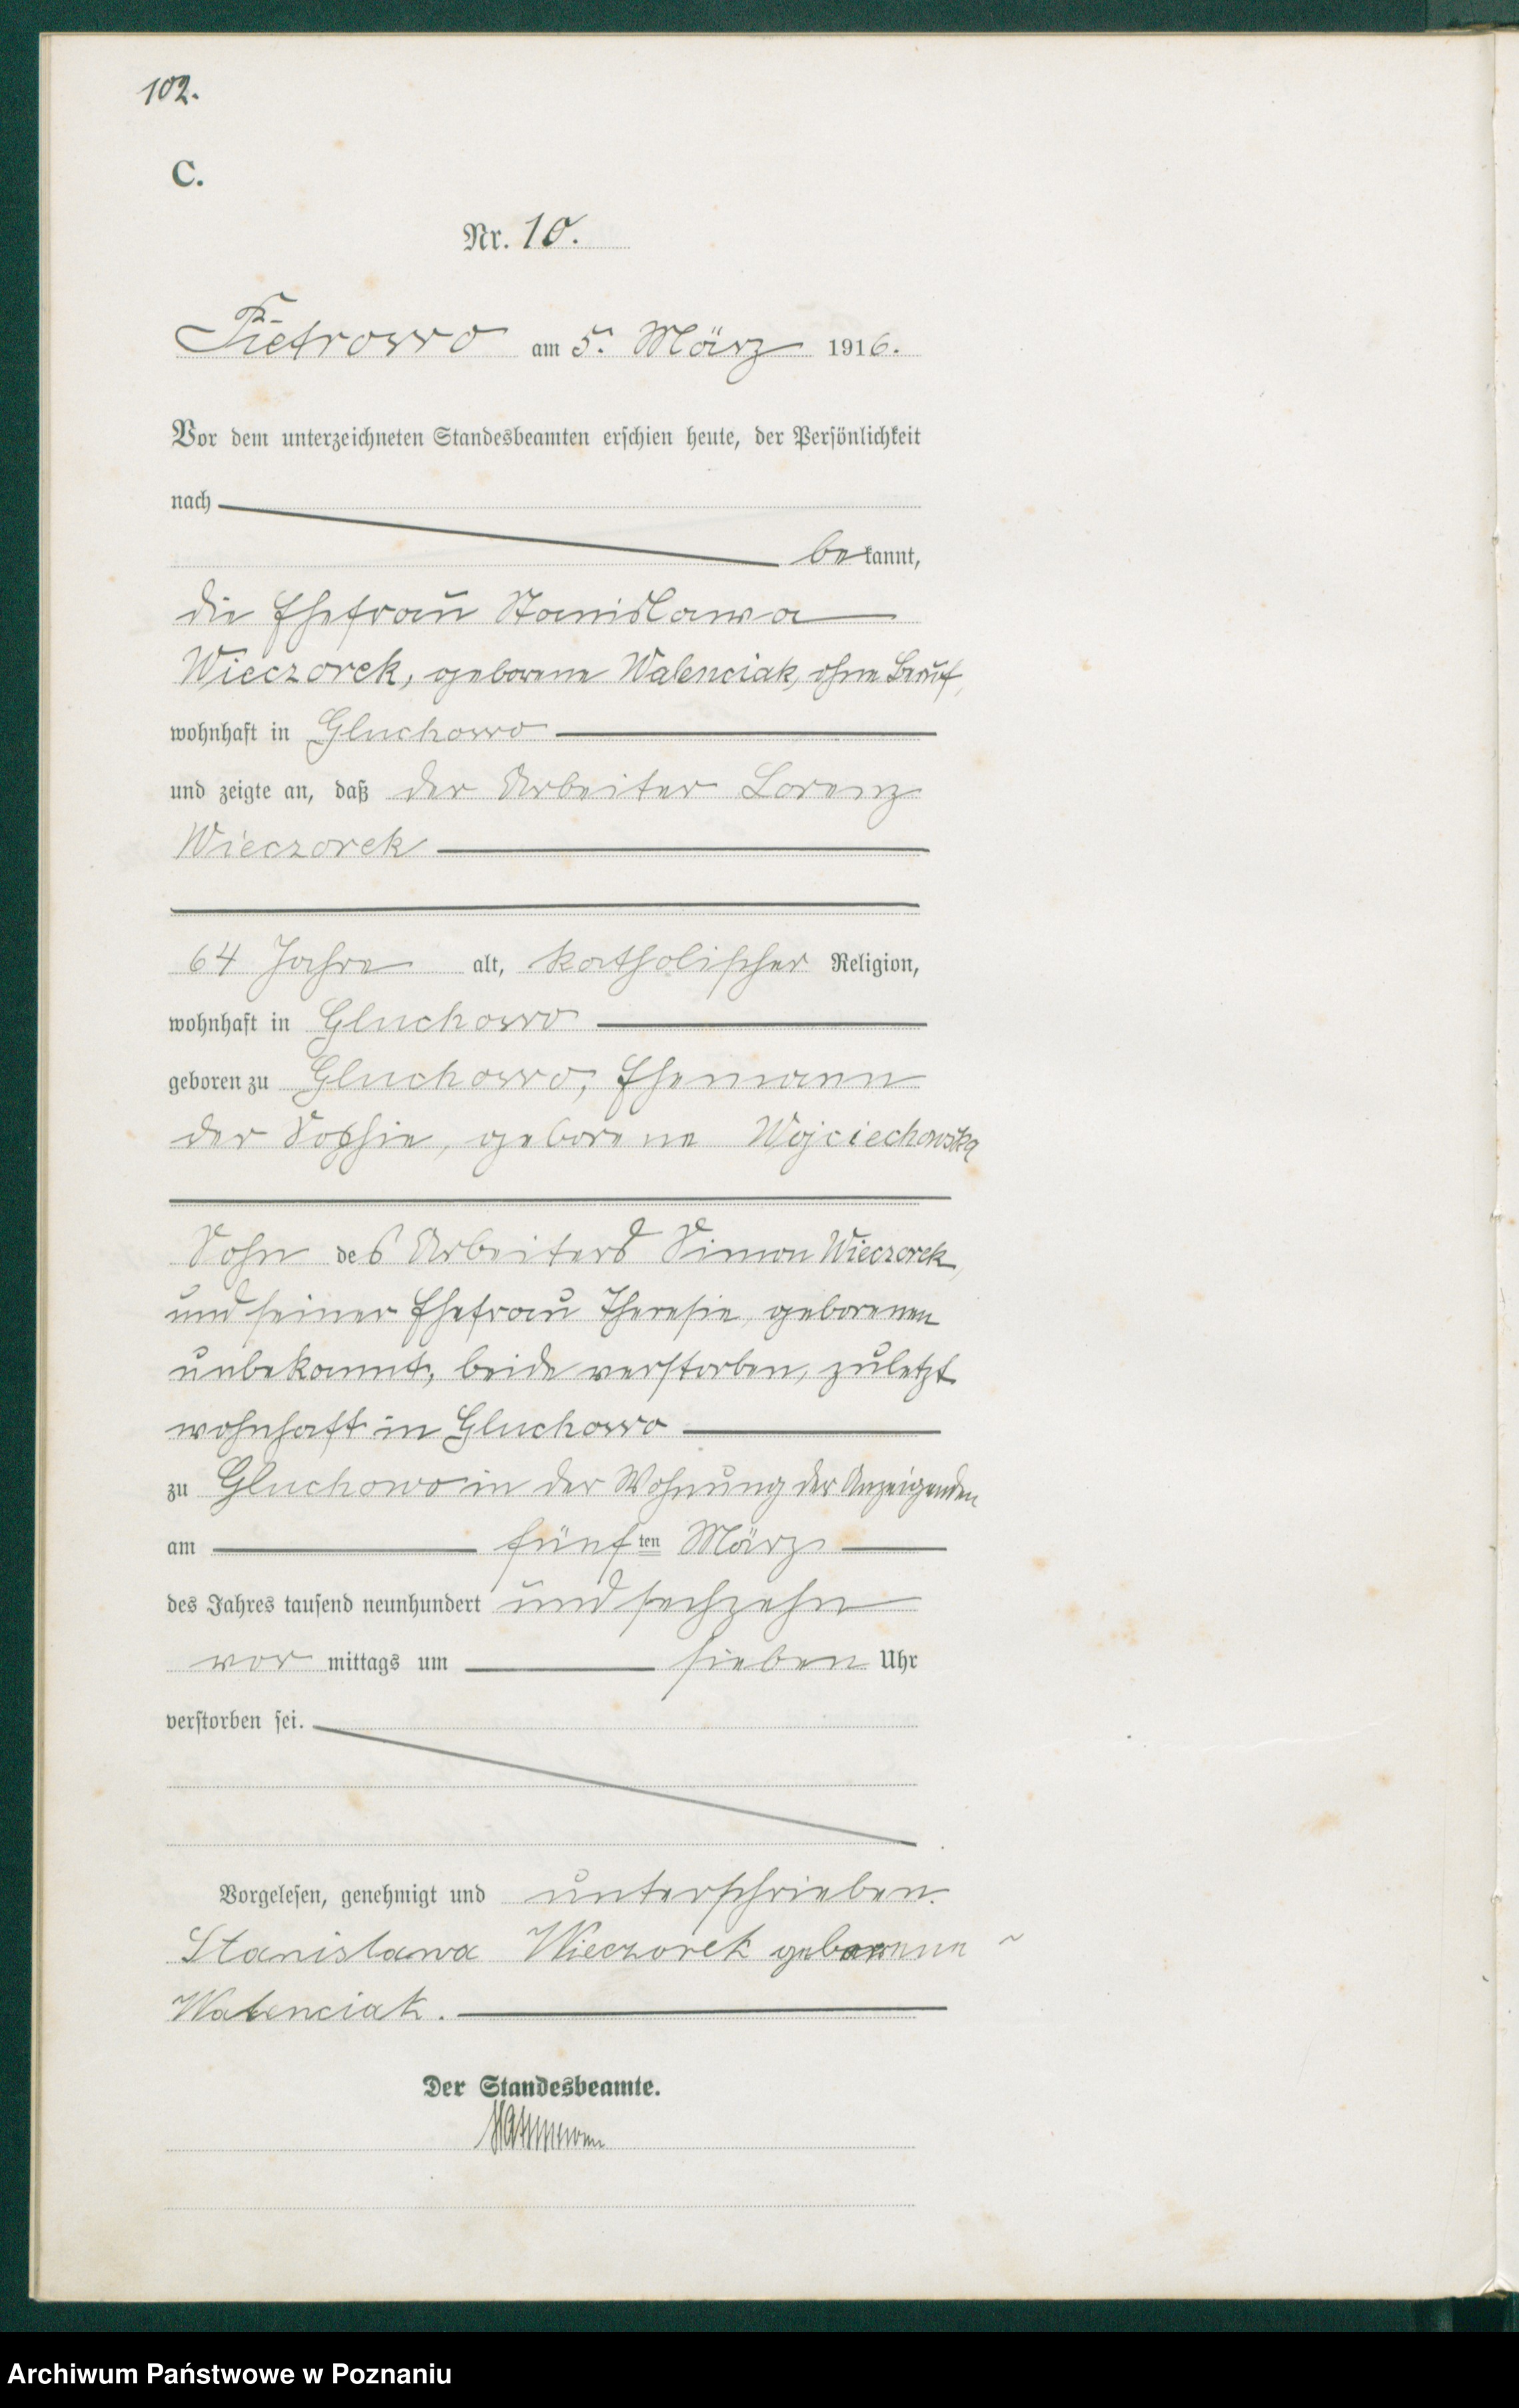 102.
C.
Nr. 10.
Pietrowo am 5. März 1916.
Vor dem unterzeichneten Standesbeamten erschien heute, der Persönlichkeit
nach
bekannt,
die Ehefrau Stanislawa
Wieczorek, geborene Walenciak, ohne Beruf,
wohnhaft in Gluchowo
und zeigte an, daß der Arbeiter Lorenz
Wieczorek
64 Jahre alt, katholischer Religion,
wohnhaft in Gluchowo
geboren zu Gluchowo, Ehemann
der Sophie, geborene Wojciechowska
Sohn des Arbeiters Simon Wieczorek,
und seiner Ehefrau Theresie, geborenen
unbekannt, beide verstorben, zuletzt
wohnhaft in Gluchowo
zu Gluchowo in der Wohnung der Anzeigenden
am fünften März
des Jahres tausend neunhundert und sechzehn
vor mittags um sieben Uhr
verstorben sei.
Vorgelesen, genehmigt und unterschrieben.
Stanislawa Wieczorek geborene
Walenciak.
Der Standesbeamte.
Archiwum Państwowe w Poznaniu